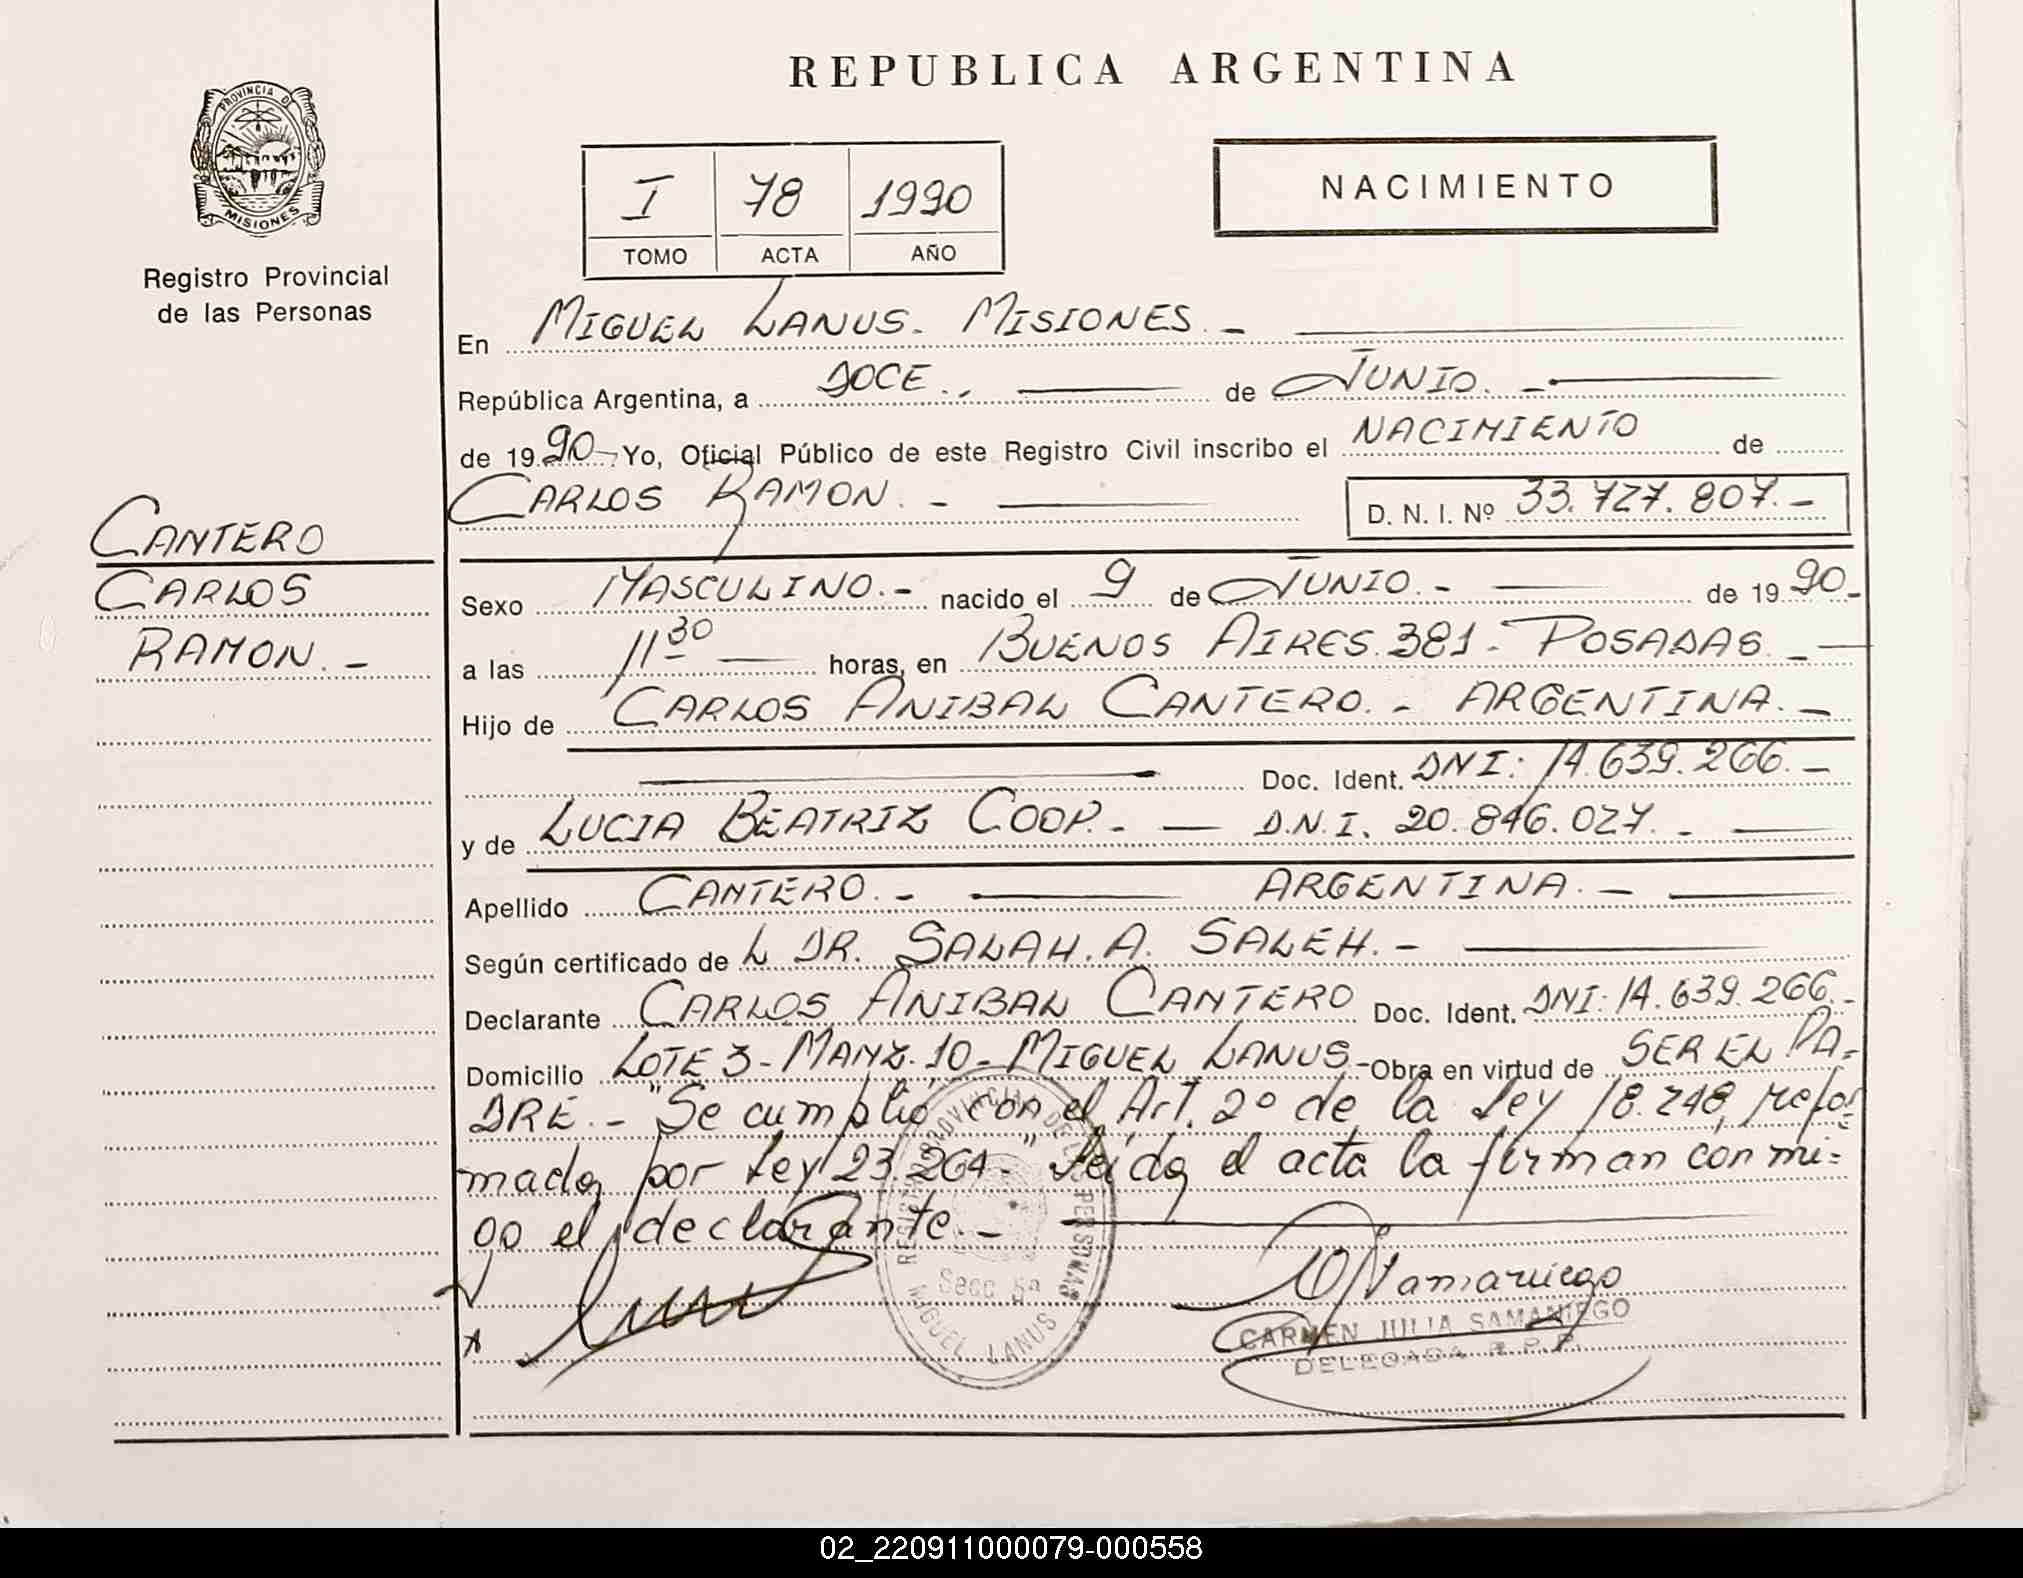 REPUBLICA ARGENTINA
PROVINCIA DE
MISIONES
Registro Provincial
de las Personas
I 78 1990
TOMO ACTA AÑO
NACIMIENTO
En MIGUEL LANUS. MISIONES. -
República Argentina, a DOCE.. de JUNIO. -
de 1990 Yo, Oficial Público de este Registro Civil inscribo el NACIMIENTO de
CARLOS RAMON. - D. N. I. Nº 33.727.807.-
CANTERO
CARLOS
RAMON. -
Sexo MASCULINO.- nacido el 9 de JUNIO. - de 1990-
a las 11 30 horas, en BUENOS AIRES 381- POSADAS. -
Hijo de CARLOS ANIBAL CANTERO. - ARGENTINA. -
Doc. Ident. DNI: 14.639.266. -
y de LUCIA BEATRIZ COOP. - D.N.I. 20.846.027. -
Apellido CANTERO. - ARGENTINA. -
Según certificado de L DR. SALAH. A. SALEH. -
Declarante CARLOS ANIBAL CANTERO Doc. Ident. DNI: 14.639.266.-
Domicilio LOTE 3 - MANZ. 10 - MIGUEL LANUS.- Obra en virtud de SER EL PA-
DRE. - "Se cumplio con el Art. 2º de la Ley 18.248, refor-
mada por Ley 23.264." Leída el acta la firman con mi-
go el declarante. -
REGISTRO PROVINCIAL DE LAS PERSONAS
Secc. 5ª
MIGUEL LANUS
CJSamaniego
CARMEN JULIA SAMANIEGO
DELEGADA R.P.P.
02_220911000079-000558